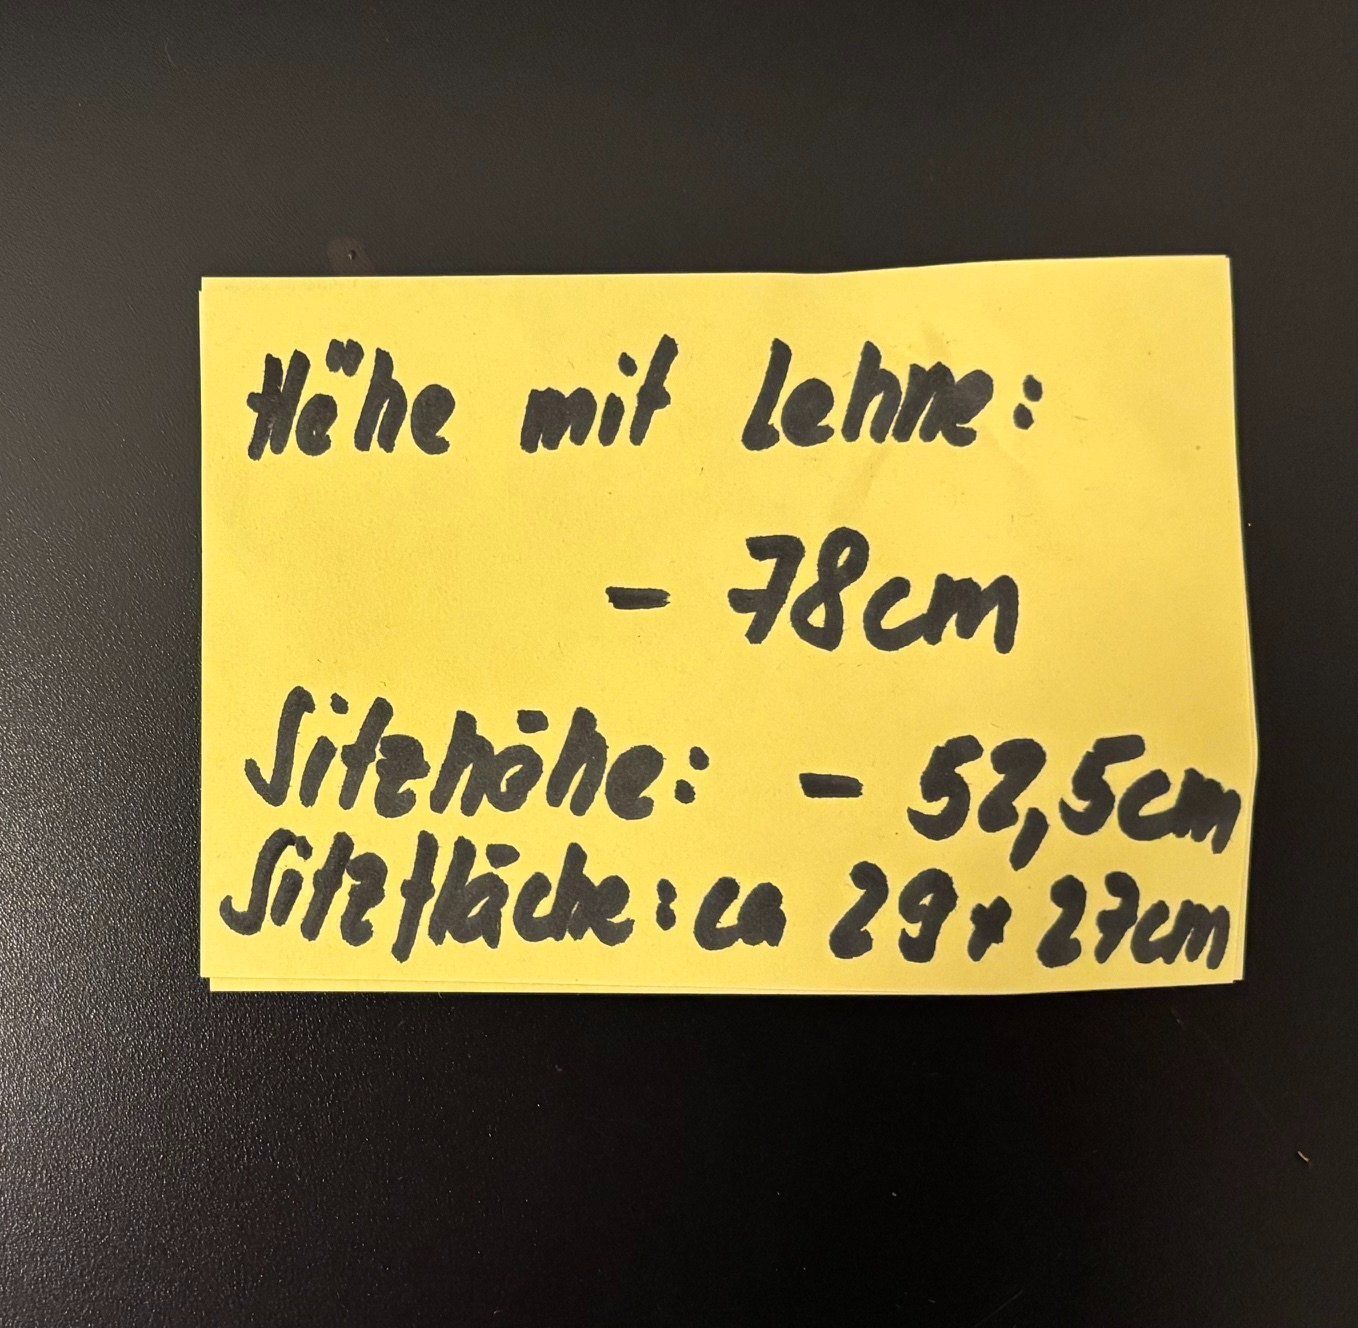 Höhe mit Lehne:
- 78cm
Sitzhöhe: - 52,5cm
Sitzfläche: ca 29 x 27cm